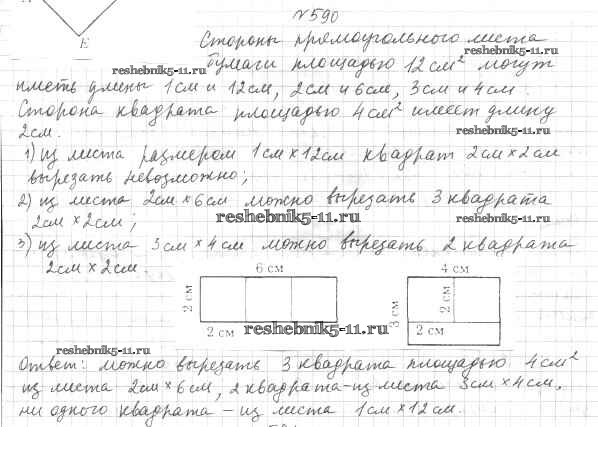 E
№590
Стороны прямоугольного листа
reshebnik5-11.ru
бумаги площадью 12 см² могут
reshebnik5-11.ru
иметь длины 1см и 12см, 2см и 6см, 3см и 4см.
Сторона квадрата площадью 4см² имеет длину
2см.
reshebnik5-11.ru
1) из листа размером 1см × 12см квадрат 2см × 2см
вырезать невозможно;
2) из листа 2см × 6см можно вырезать 3 квадрата
2см × 2см;
reshebnik5-11.ru
reshebnik5-11.ru
3) из листа 3см × 4см можно вырезать 2 квадрата
2см × 2см.
6 см
4 см
2 см
2 см
3 см
2 см
2 см
reshebnik5-11.ru
reshebnik5-11.ru
Ответ: можно вырезать 3 квадрата площадью 4см²
из листа 2см × 6см, 2 квадрата - из листа 3см × 4см,
ни одного квадрата - из листа 1см × 12см.
reshebnik5-11.ru